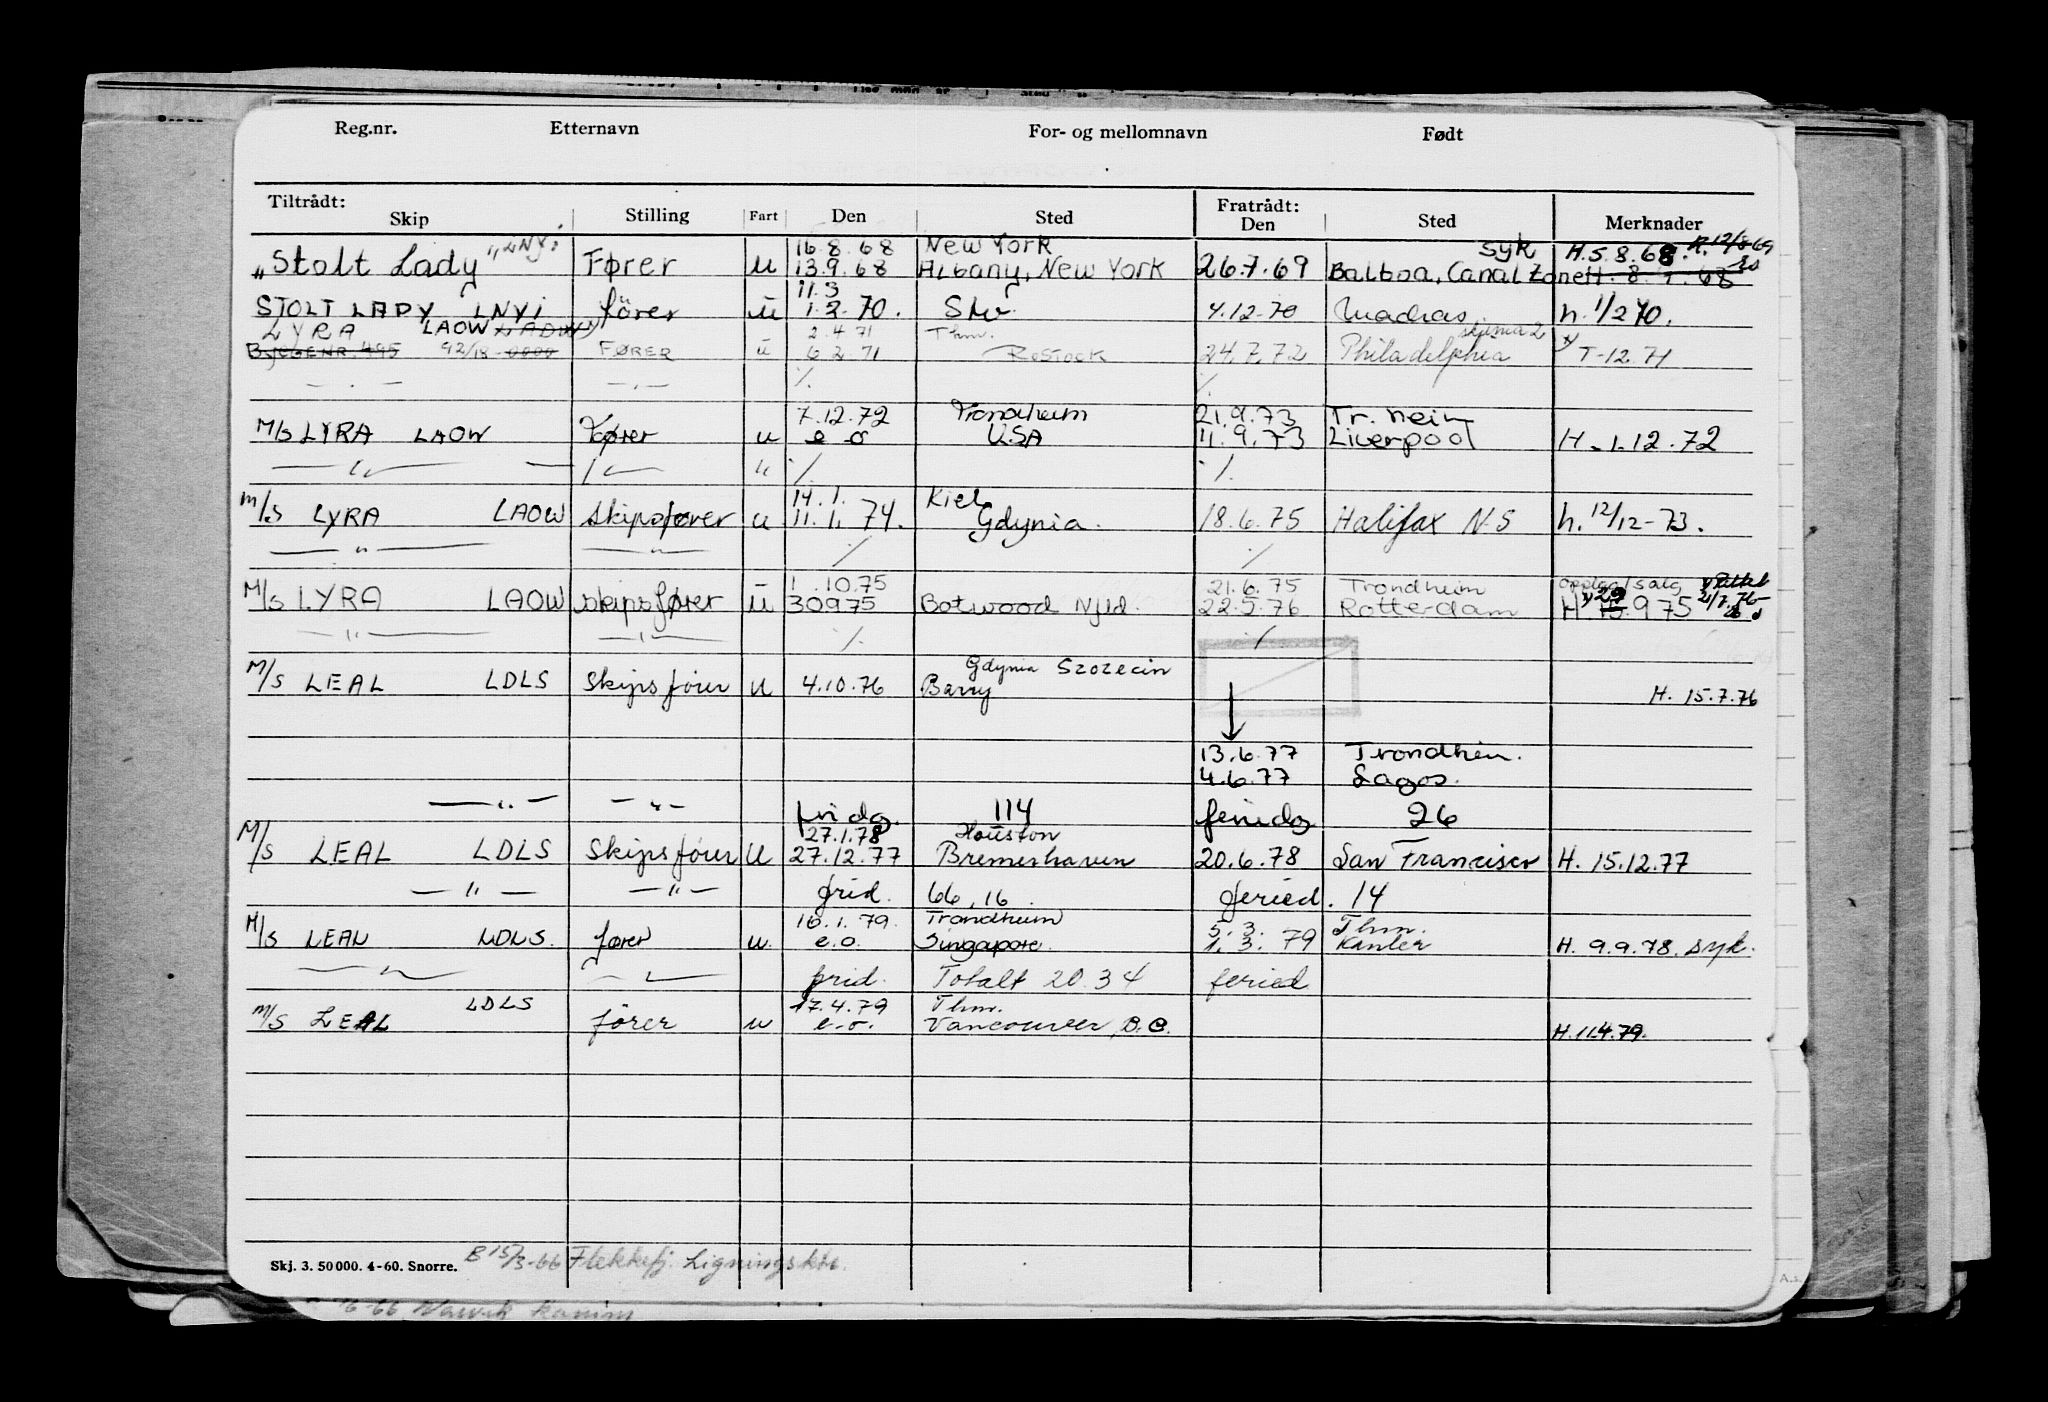 Reg.nr. Etternavn For- og mellomnavn Født
Tiltrådt: Fratrådt:
Skip Stilling Fart Den Sted Den Sted Merknader
16.8.68 New York syk H.5.8.68.
"Stolt Lady" Fører u 13.9.68 Albany, New York 26.7.69 Balboa, Canal Zone H. 8.9.68
11.3
STOLT LADY LNYI fører u 1.2.70. 4.12.70 Madras h. 1/2 70.
LYRA LAOW 2.4.71 Thm.
BYGGENR 495 92/18 0000 FØRER u 6.2.71 Rostock 24.7.72 Philadelphia T-12.71
— . — — . — ./. ./.
7.12.72 Trondheim 21.9.73 Tr. heim
M/S LYRA LAOW Fører u e o USA 11.9.73 Liverpool H. 1.12.72
— " — — " — " ./. ./.
14.1. Kiel
M/S LYRA LAOW Skipsfører u 11.1.74. Gdynia. 18.6.75 Halifax N.S h. 12/12-73.
— " — — " — ./. ./.
1.10.75 21.6.75 Trondheim opplag/salg
M/S LYRA LAOW Skipsfører u 30975 Botwood Nfld. 22.5.76 Rotterdam H. 29 15.9 75 21/7.76
— " — — " — ./. ./.
Gdynia Szczecin
M/S LEAL LDLS Skipsfører u 4.10.76 Barry H. 15.7.76
13.6.77 Trondheim.
4.6.77 Lagos.
— " — — " — fridg. 114 feriedg 26
27.1.78 Houston
M/S LEAL LDLS Skipsfører u 27.12.77 Bremerhaven 20.6.78 San Francisco H. 15.12.77
— " — — " — frid. 66,16 feried. 14
16.1.79. Trondheim 5.3. Thm.
M/S LEAL LDLS. fører u. e.o. Singapore. 1.3.79 H. 9.9.78. syk.
— " — — " — frid. Totalt 20.34 feried
LDLS 17.4.79 Thm.
M/S LEAL fører u e.o. Vancouver, B.C. H. 11.4.79.
Skj. 3. 50 000. 4-60. Snorre. B 15/3-66 Flekkefj. Ligningsktr.
6-66 Narvik